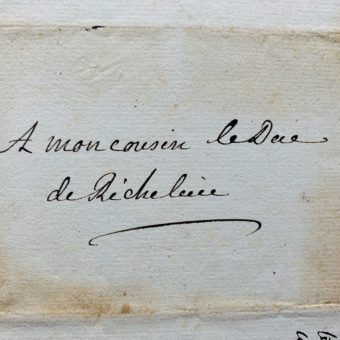 A mon cousin le Duc
de Richelieu